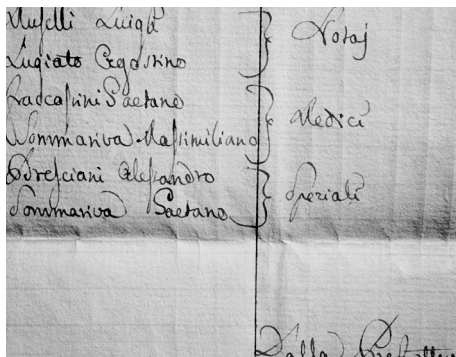 Muselli Luigi
Lugiato Agostino
Notaj
Gaetano
Sommariva Massimiliano
Medici
Bresciani Alessandro
Sommariva Gaetano
Speziali
Dalla